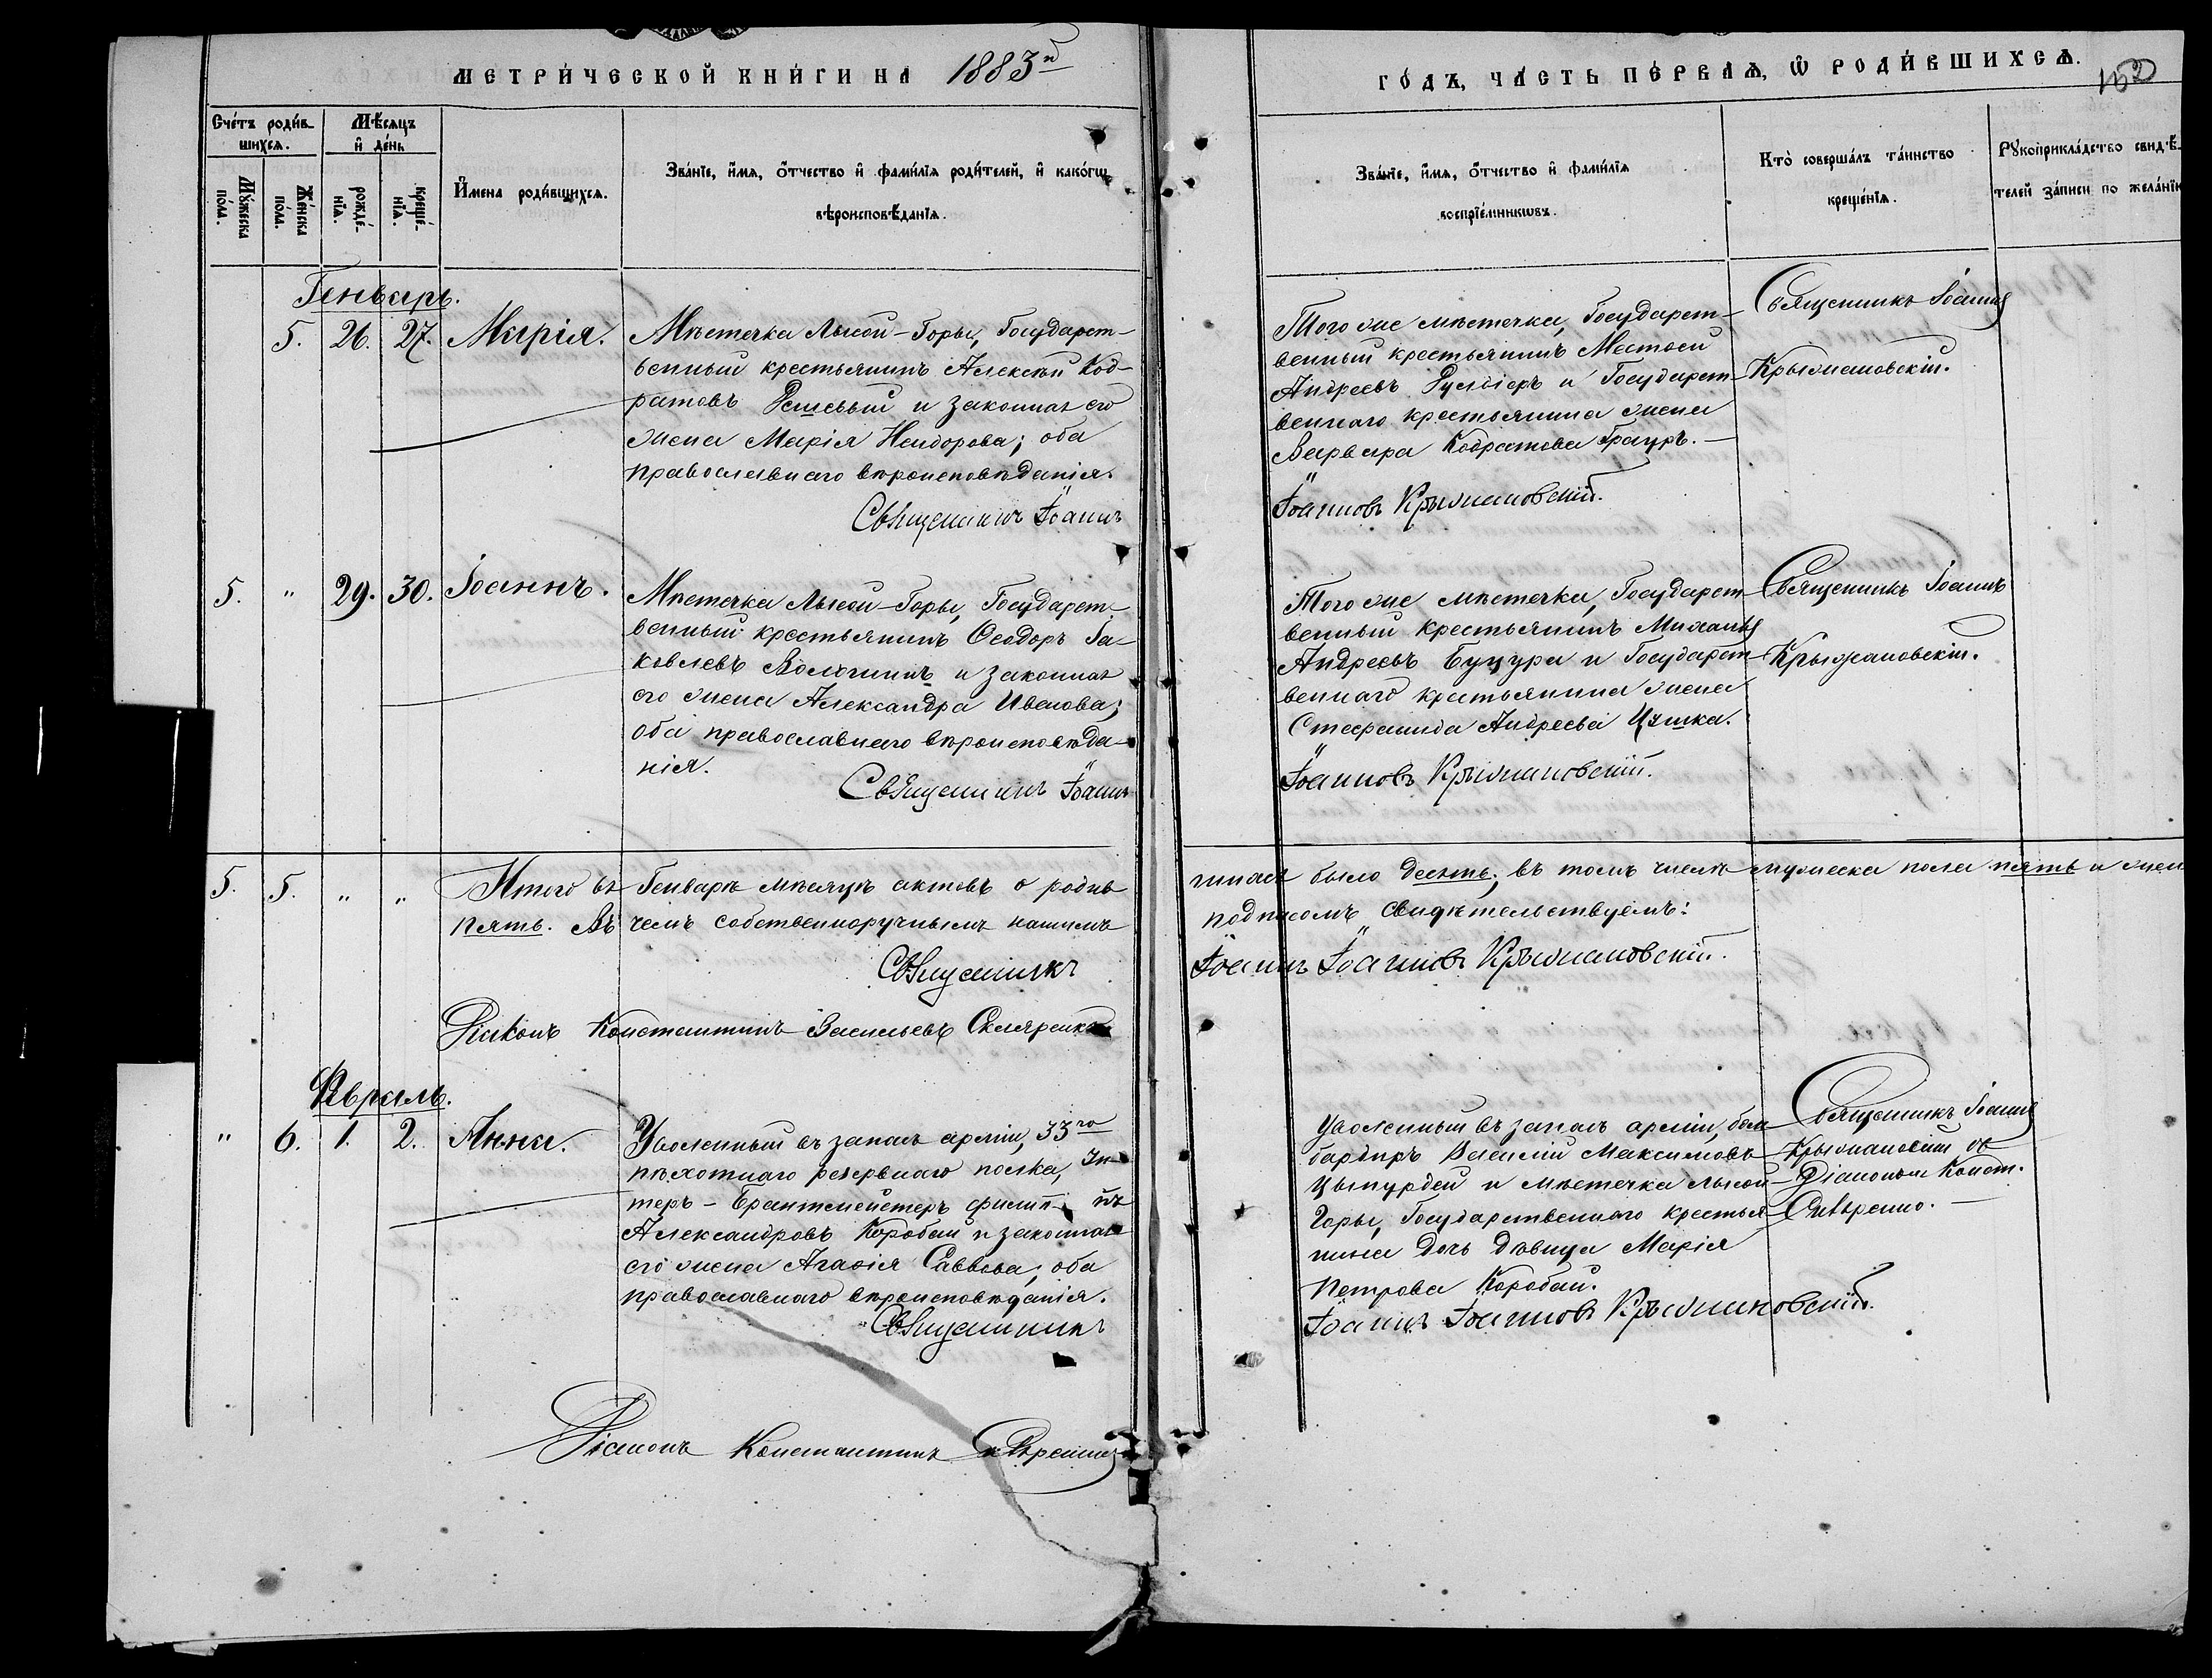 МЕТРИ́ЧЕСКОЙ КНИ́ГИ НА 1883й
ГО́ДЪ, ЧА́СТЬ ПЕ́РВАѦ, Ѡ҆ РОДИ́ВШИХСѦ.
Сче́тъ роди́в-
шихсѧ.
Мѣ́сѧцъ
и҆ де́нь
Мꙋ́жеска
по́ла.
Же́нска
по́ла.
рожде́-
нїѧ.
креще́-
нїѧ.
И҆мена роди́вшихсѧ.
Зва́нїе, и҆́мѧ, о҆́тчество и҆ фами́лїѧ роди́телей, и҆ како́гѡ
вѣроисповѣ́данїѧ.
Зва́нїе, и҆́мѧ, о҆́тчество и҆ фами́лїѧ
воспрїе́мникѡвъ.
Кто̀ соверша́лъ та́инство
креще́нїѧ.
Рꙋкоприкла́дство свидѣ́-
телей за́писи по жела́нїю
Генварь.
5. 26. 27. Марія.
Мѣстечка Лысой-Горы, Государст-
венный крестьянинъ Алексѣй Код-
ратовъ и законная его
жена Марія Исидорова; оба
православнаго вѣроисповѣданія.
Священникъ Іоаннъ
Того же мѣстечка, Государст-
венный крестьянинъ
Андреевъ и Государст-
веннаго крестьянина жена
Варвара Кодратова Грауръ.
Іоанновъ Крыжановскій.
Священникъ Іоаннъ
Крыжановскій.
5. " 29. 30. Іоаннъ.
Мѣстечка Лысой-Горы, Государст-
венный крестьянинъ Ѳеодоръ Іа-
ковлевъ и законная
его жена Александра Иванова;
оба православнаго вѣроисповѣда-
нія.
Священникъ Іоаннъ
Того же мѣстечка, Государст-
венный крестьянинъ Михаилъ
Андреевъ Буцура и Государст-
веннаго крестьянина жена
Стефанида Андреева Цушка.
Іоанновъ Крыжановскій.
Священникъ Іоаннъ
Крыжановскій.
5. 5. " " Итого въ Генварѣ мѣсяцѣ актовъ о родив
шихся было десять; въ томъ числѣ мужеска пола пять и жен
пять. Въ чемъ собственноручнымъ нашимъ
подписомъ свидѣтельствуемъ:
Священникъ
Іоаннъ Іоанновъ Крыжановскій.
Діаконъ Константинъ Васильевъ
Февраль.
" 6. 1. 2. Анна.
Уволенный въ запасъ арміи, 33го
пѣхотнаго резервнаго полка, Ун-
теръ-
Александровъ Коробан и законная
его жена Агафія Саввова; оба
православнаго вѣроисповѣданія.
Священникъ
Уволенный въ запасъ арміи, бом
бардиръ Василій Максимовъ
и мѣстечка Лысой
Горы, Государственнаго крестья-
нина дочь дѣвица Марія
Петрова Коробан.
Іоаннъ Іоанновъ Крыжановскій.
Священникъ Іоаннъ
Крыжановскій съ
Діакономъ Конст.
Діаконъ Константинъ